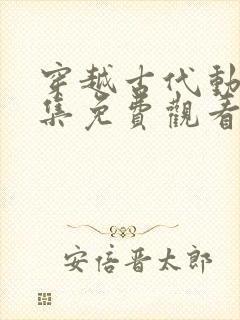 穿越古代動
集免費觀看
安倍晋太郎